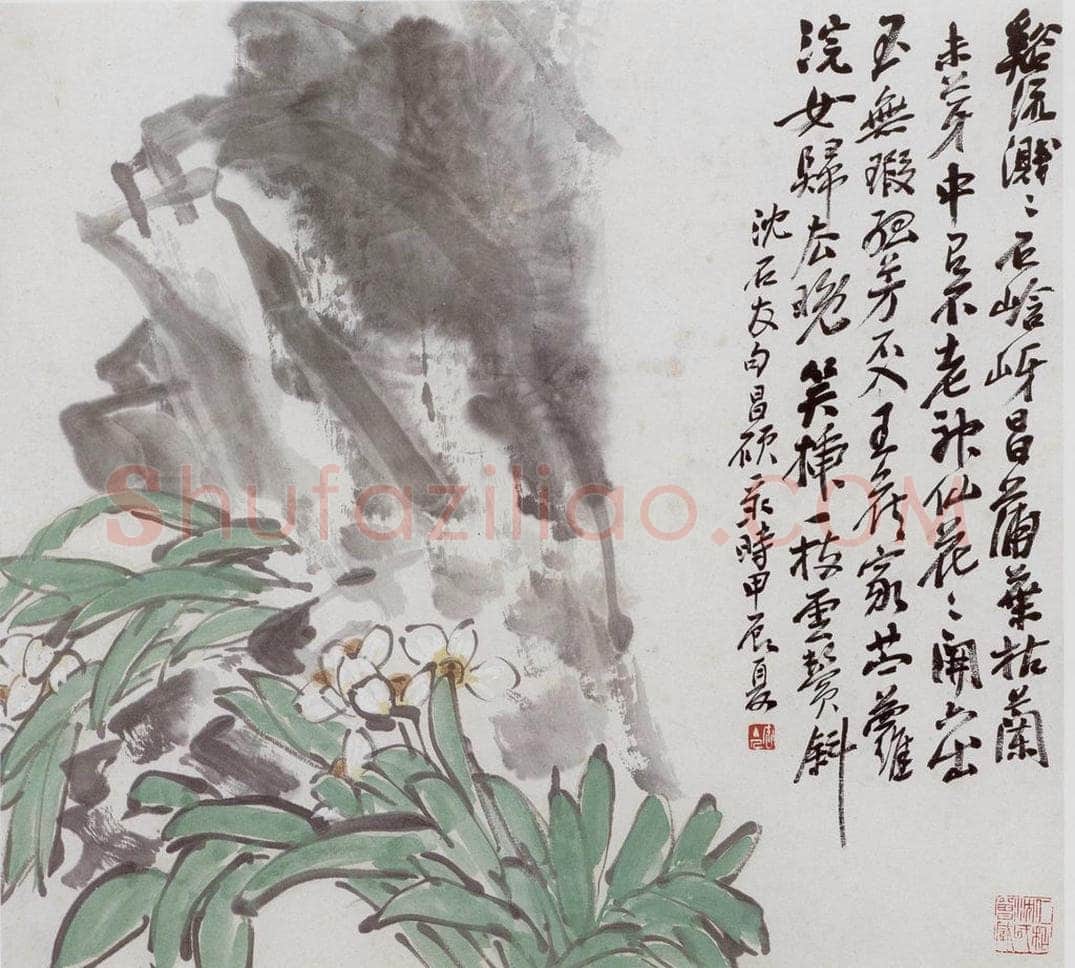 谿流濺〻石峆岈昌蒲葉枯蘭
未芽中有不老神仙花〻開六出
玉無瑕孤芳不入王侯家苎蘿
浣女歸去晚笑插一枝雲鬢斜
沈石友句昌碩录時甲辰夏
Shufaziliao.COM